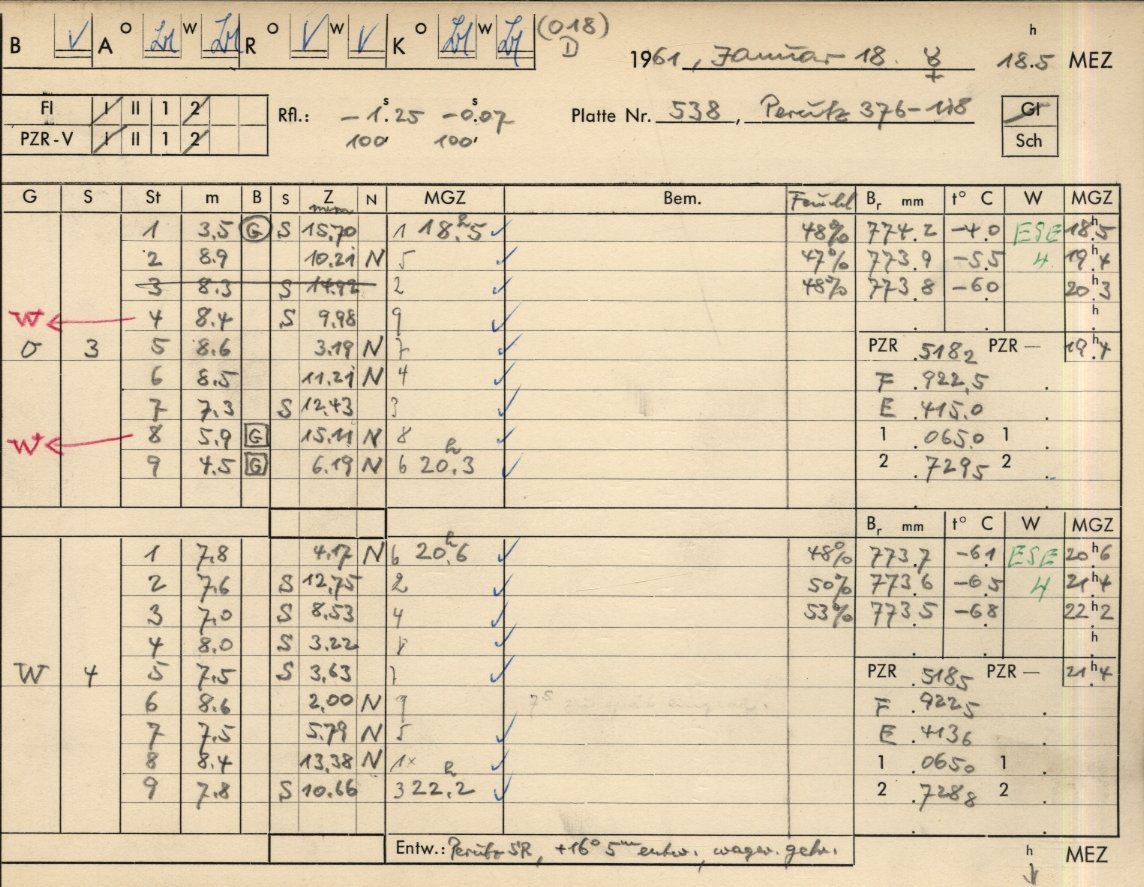 B V A O W R O V W V K O W (018) D
1961, Januar 18. ☿ 18.5 h MEZ
Fl I II 1 2 Rfl.: -1.25 s -0.07 s Platte Nr. 538, Perutz 376-118 Gl
PZR-V I II 1 2 100 100 Sch
G S St m B S Z N MGZ Bem. Br mm t° C W MGZ
1 3.5 G S 15.70 1 18h.5 ✓ 48% 774.2 -4.0 ESE 18h.5
2 8.9 10.21 N 5 ✓ 47% 773.9 -5.5 4 19h.4
3 8.3 S 14.92 2 ✓ 48% 773.8 -6.0 20h.3
W 4 8.4 S 9.98 9 ✓ h
O 3 5 8.6 3.19 N 7 ✓ PZR .5182 PZR — 19h.4
6 8.5 11.21 N 4 ✓ F .9225
7 7.3 S 12.43 3 ✓ E .4150
W 8 5.9 G 15.11 N 8 ✓ 1 .0650 1
9 4.5 G 6.19 N 6 20h.3 ✓ 2 .7295 2
Br mm t° C W MGZ
1 7.8 4.17 N 6 20h.6 ✓ 48% 773.7 -6.1 ESE 20h.6
2 7.6 S 12.75 2 ✓ 50% 773.6 -6.5 4 21h.4
3 7.0 S 8.53 4 ✓ 53% 773.5 -6.8 22h.2
4 8.0 S 3.22 8 ✓ h
W 4 5 7.5 S 3.63 7 ✓ PZR .5185 PZR — 21h.4
6 8.6 2.00 N 9 F .9225
7 7.5 5.79 N 5 ✓ E .4136
8 8.4 13.38 N 1x ✓ 1 .0650 1
9 7.8 S 10.66 3 22h.2 ✓ 2 .7288 2
Entw.: Perutz SR, +16° 5m entw., h MEZ